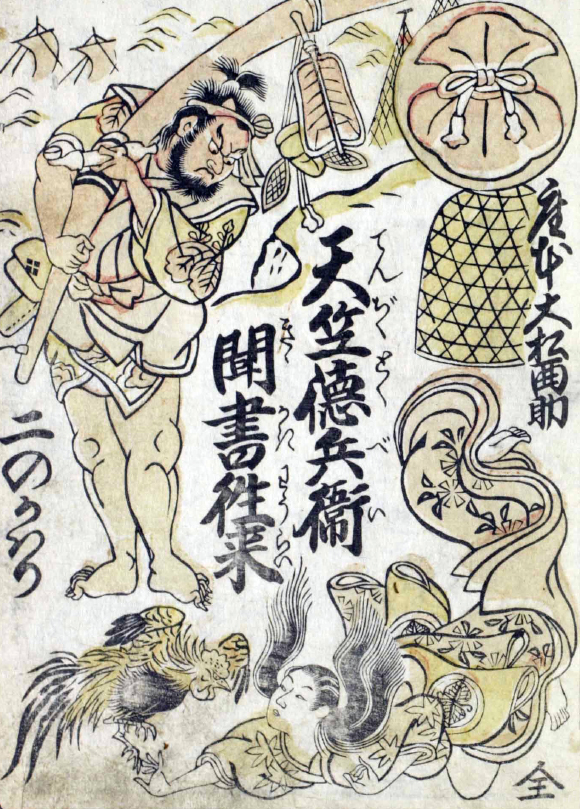 座本大松百助
天竺徳兵衛
てんぢくとくべい
聞書往来
きゝかきわうらい
二のかはり
全